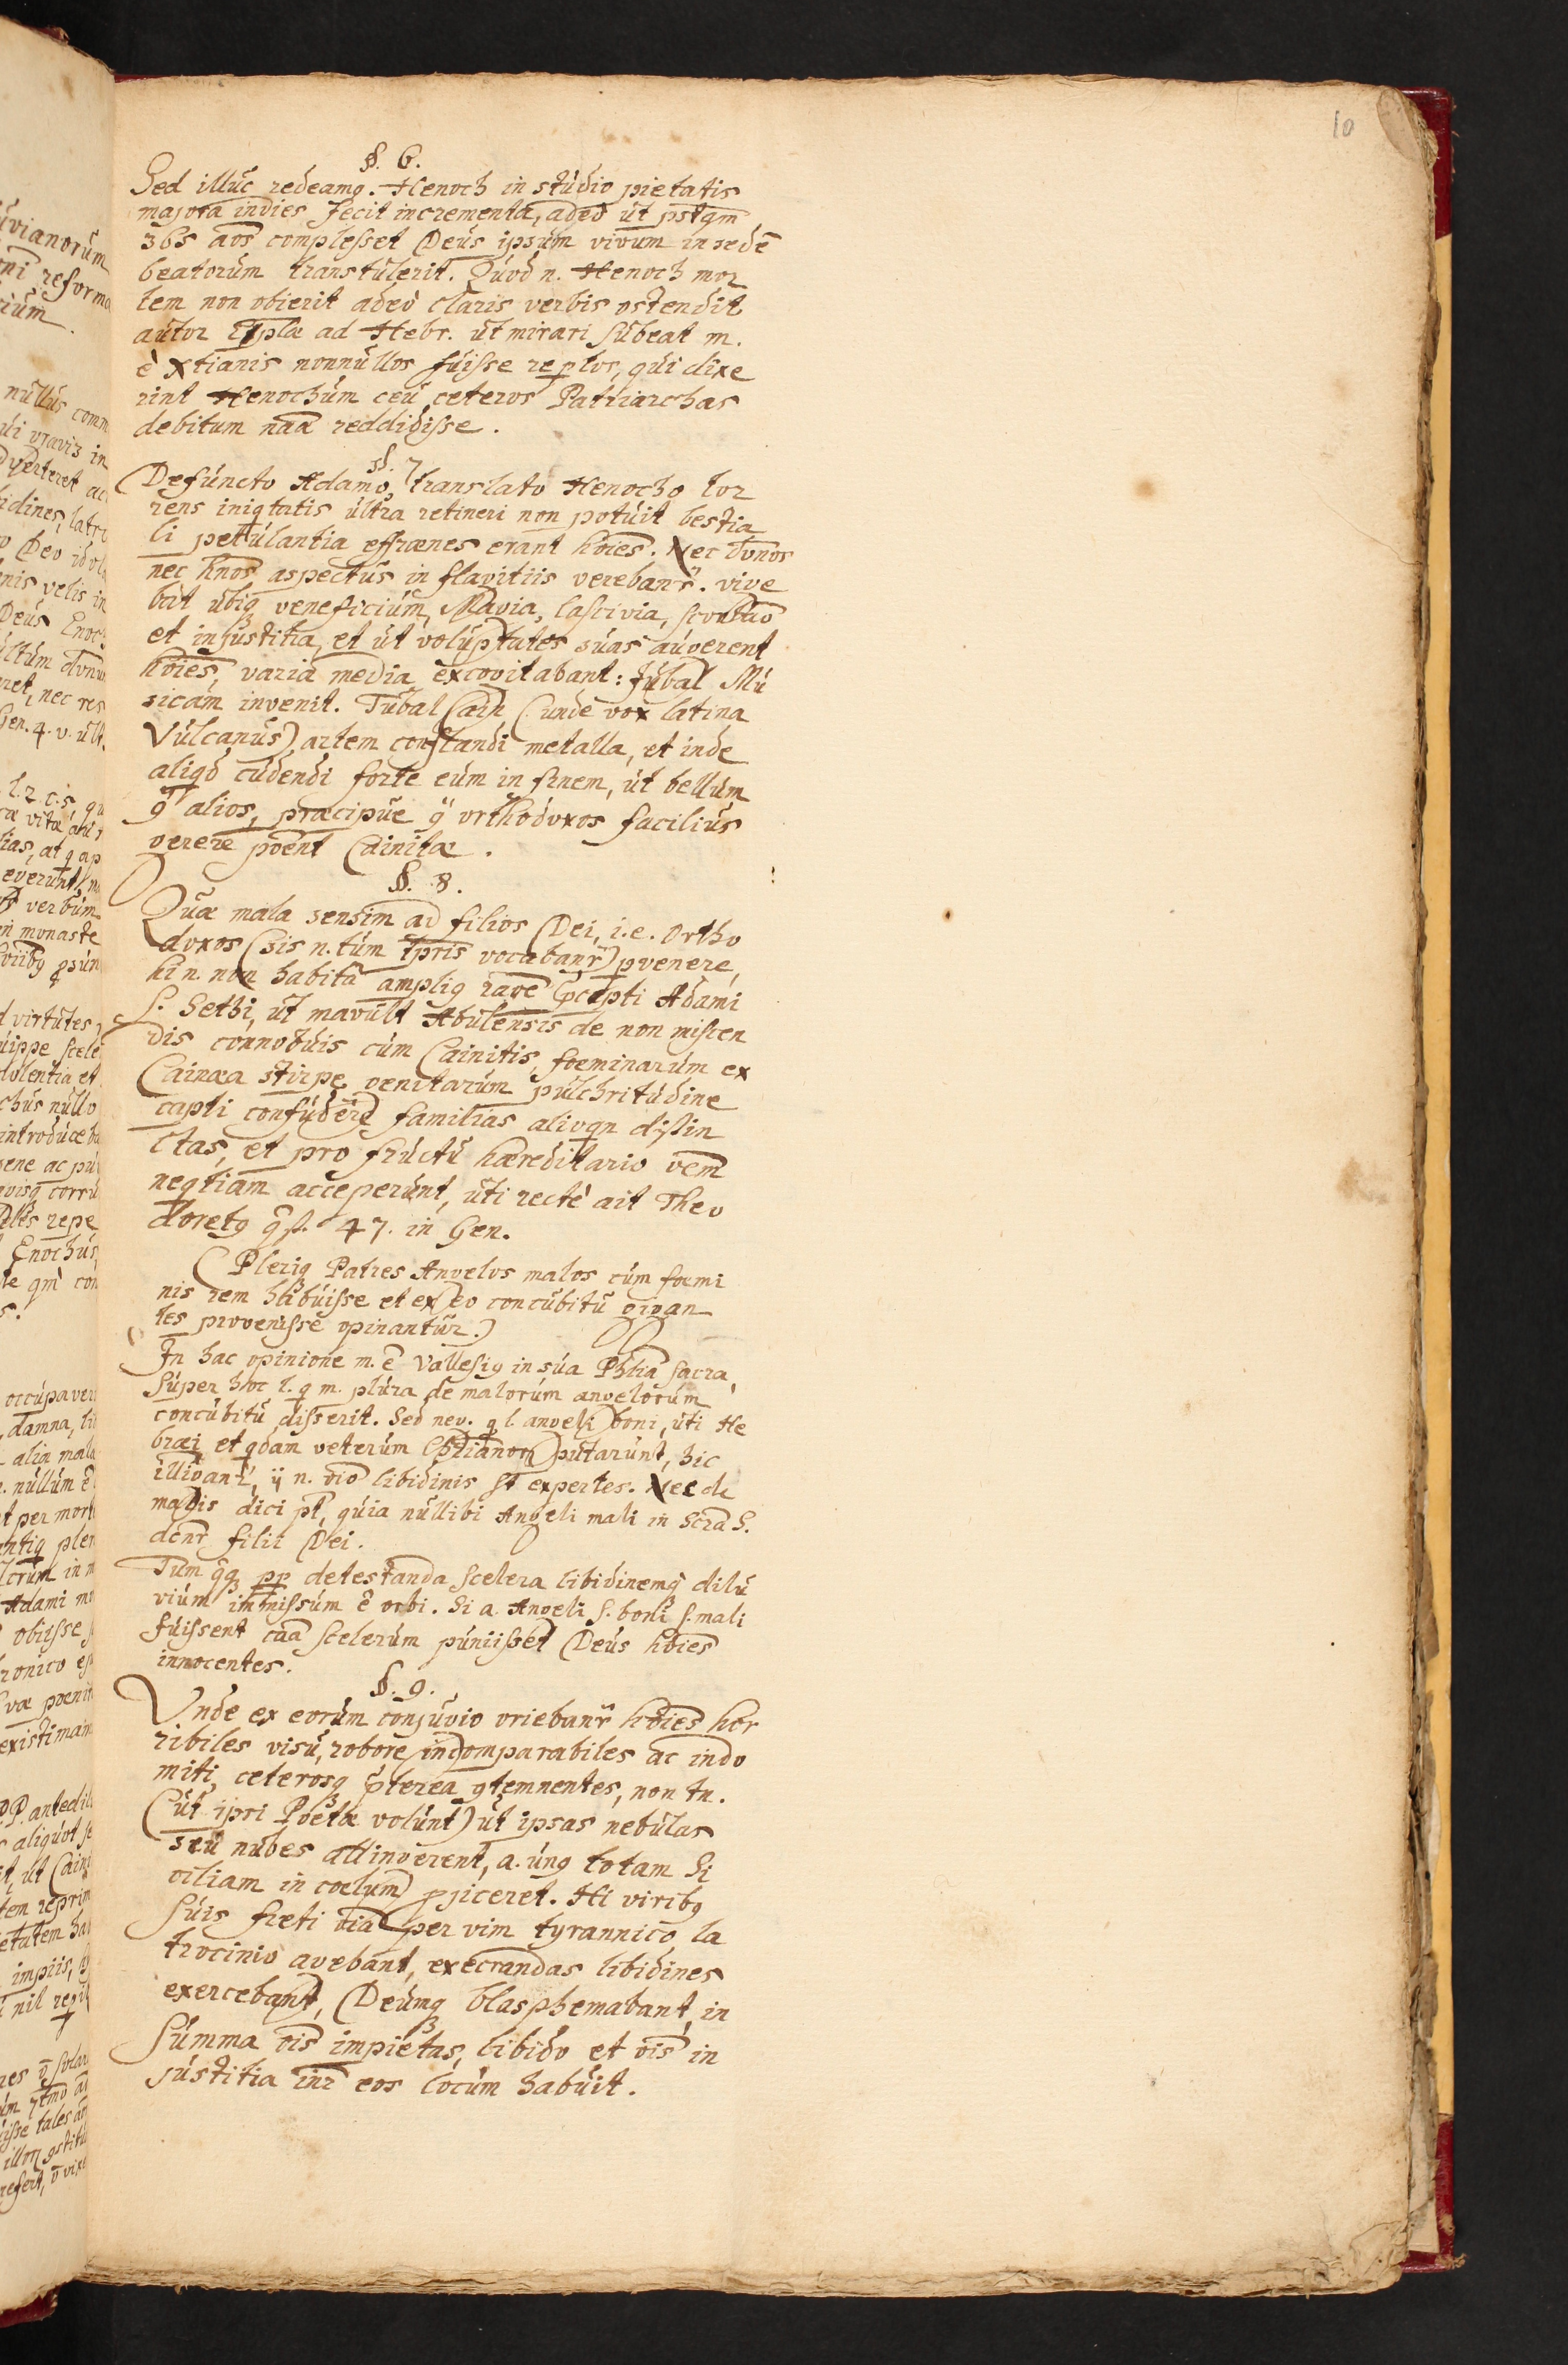 10
§. 6.
Sed illuc redeamq. Henoch in studio pietatis
majora indies fecit incrementa, adeò ut pstqm
365 aos complesset Deus ipsum vivum in sedē
beatorum transtulerit. Quod n. Henoch mor
tem non obierit adeò claris verbis ostendit
autor Eplæ ad Hebr. ut mirari subeat m.
è Xtianis nonnullos fuisse reptos, qui dixe
rint Henochum ceu ceteros Patriarchas
debitum naa reddidisse.
§. 7
Defuncto Adamo, translato Henocho tor
rens iniqtatis ultra retineri non potuit bestia
li petulantia effrænes erant hoies. Nec divnos
nec hnos aspectus in flagitiis verebanr. vige
bat ubiq veneficium, Magia, lascivia, scortao
et injustitia, et ut voluptates suas augerent
hoies, varia media excogitabant: Jubal Mu
sicam invenit. Tubal Cain (unde vox latina
Vulcanus) artem conflandi metalla, et inde
aliqd cudendi forte eum in finem, ut bellum
9 alios, præcipue 9 orthodoxos facilius
gerere poent Cainitæ.
§. 8.
Quæ mala sensim ad filios Dei, i.e. Ortho
doxos (sis n. tum tpris vocabanr) pvenere,
hi n. non habita ampliq raoe pcepti Adami
s. Sethi, ut mavult Abulensis de non miscen
dis connobuis cum Cainitis, foeminarum ex
Cainæa stirpe genitarum pulchritudine
capti confudere familias alioqn distin
ctas, et pro fructu hæreditario vem
neqtiam acceperunt, uti rectè ait Theo
doretq qst. 47. in Gen.
(Pleriq Patres Angelos malos cum foemi
nis rem habuisse et ex eo concubitu gigan
tes progenisse opinantur.)
In hac opinione m. ē Vallesiq in sua Phlia sacra,
super hoc l. q m. plura de malorum angelorum
concubitu disserit. Sed neq. q l. angeli boni, uti He
bræi et qdam veterum Chstianor putarunt, hic
illigant, ij n. oio libidinis st expertes. Nec de
malis dici pt, quia nullibi Angeli mali in Scra S.
dcnr filii Dei.
Tum qq pp detestanda scelera libidinemq dilu
vium immissum ē orbi. Si a. Angeli s. boni s. mali
fuissent caa scelerum puniisset Deus hoies
innocentes.
§. 9.
Unde ex eorum conjugio oriebanr hoies hor
ribiles visu, robore incomparabiles ac indo
miti, ceterosq pterea 9temnentes, non tn.
(ut ipri Poetæ volunt) ut ipsas nebulas
seu nubes attingerent, a. unq totam Si
ciliam in coelum pjiceret. Hi viribq
suis freti oia per vim tyrannico la
trocinio agebant, execrandas libidines
exercebant, Deumq blasphemabant, in
summa ois impietas, libido et ois in
justitia inr eos locum habuit.